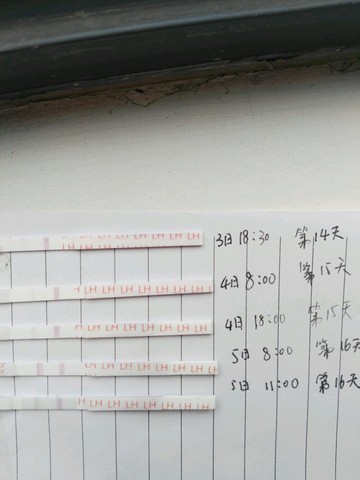 LH LH LH LH LH LH LH 3日 18:30 第14天
LH LH LH LH LH LH LH LH 4日 8:00 第15天
LH LH LH LH LH LH LH LH 4日 18:00 第15天
LH LH LH LH LH LH LH LH 5日 8:00 第16天
LH LH LH LH LH LH LH LH 5日 11:00 第16天